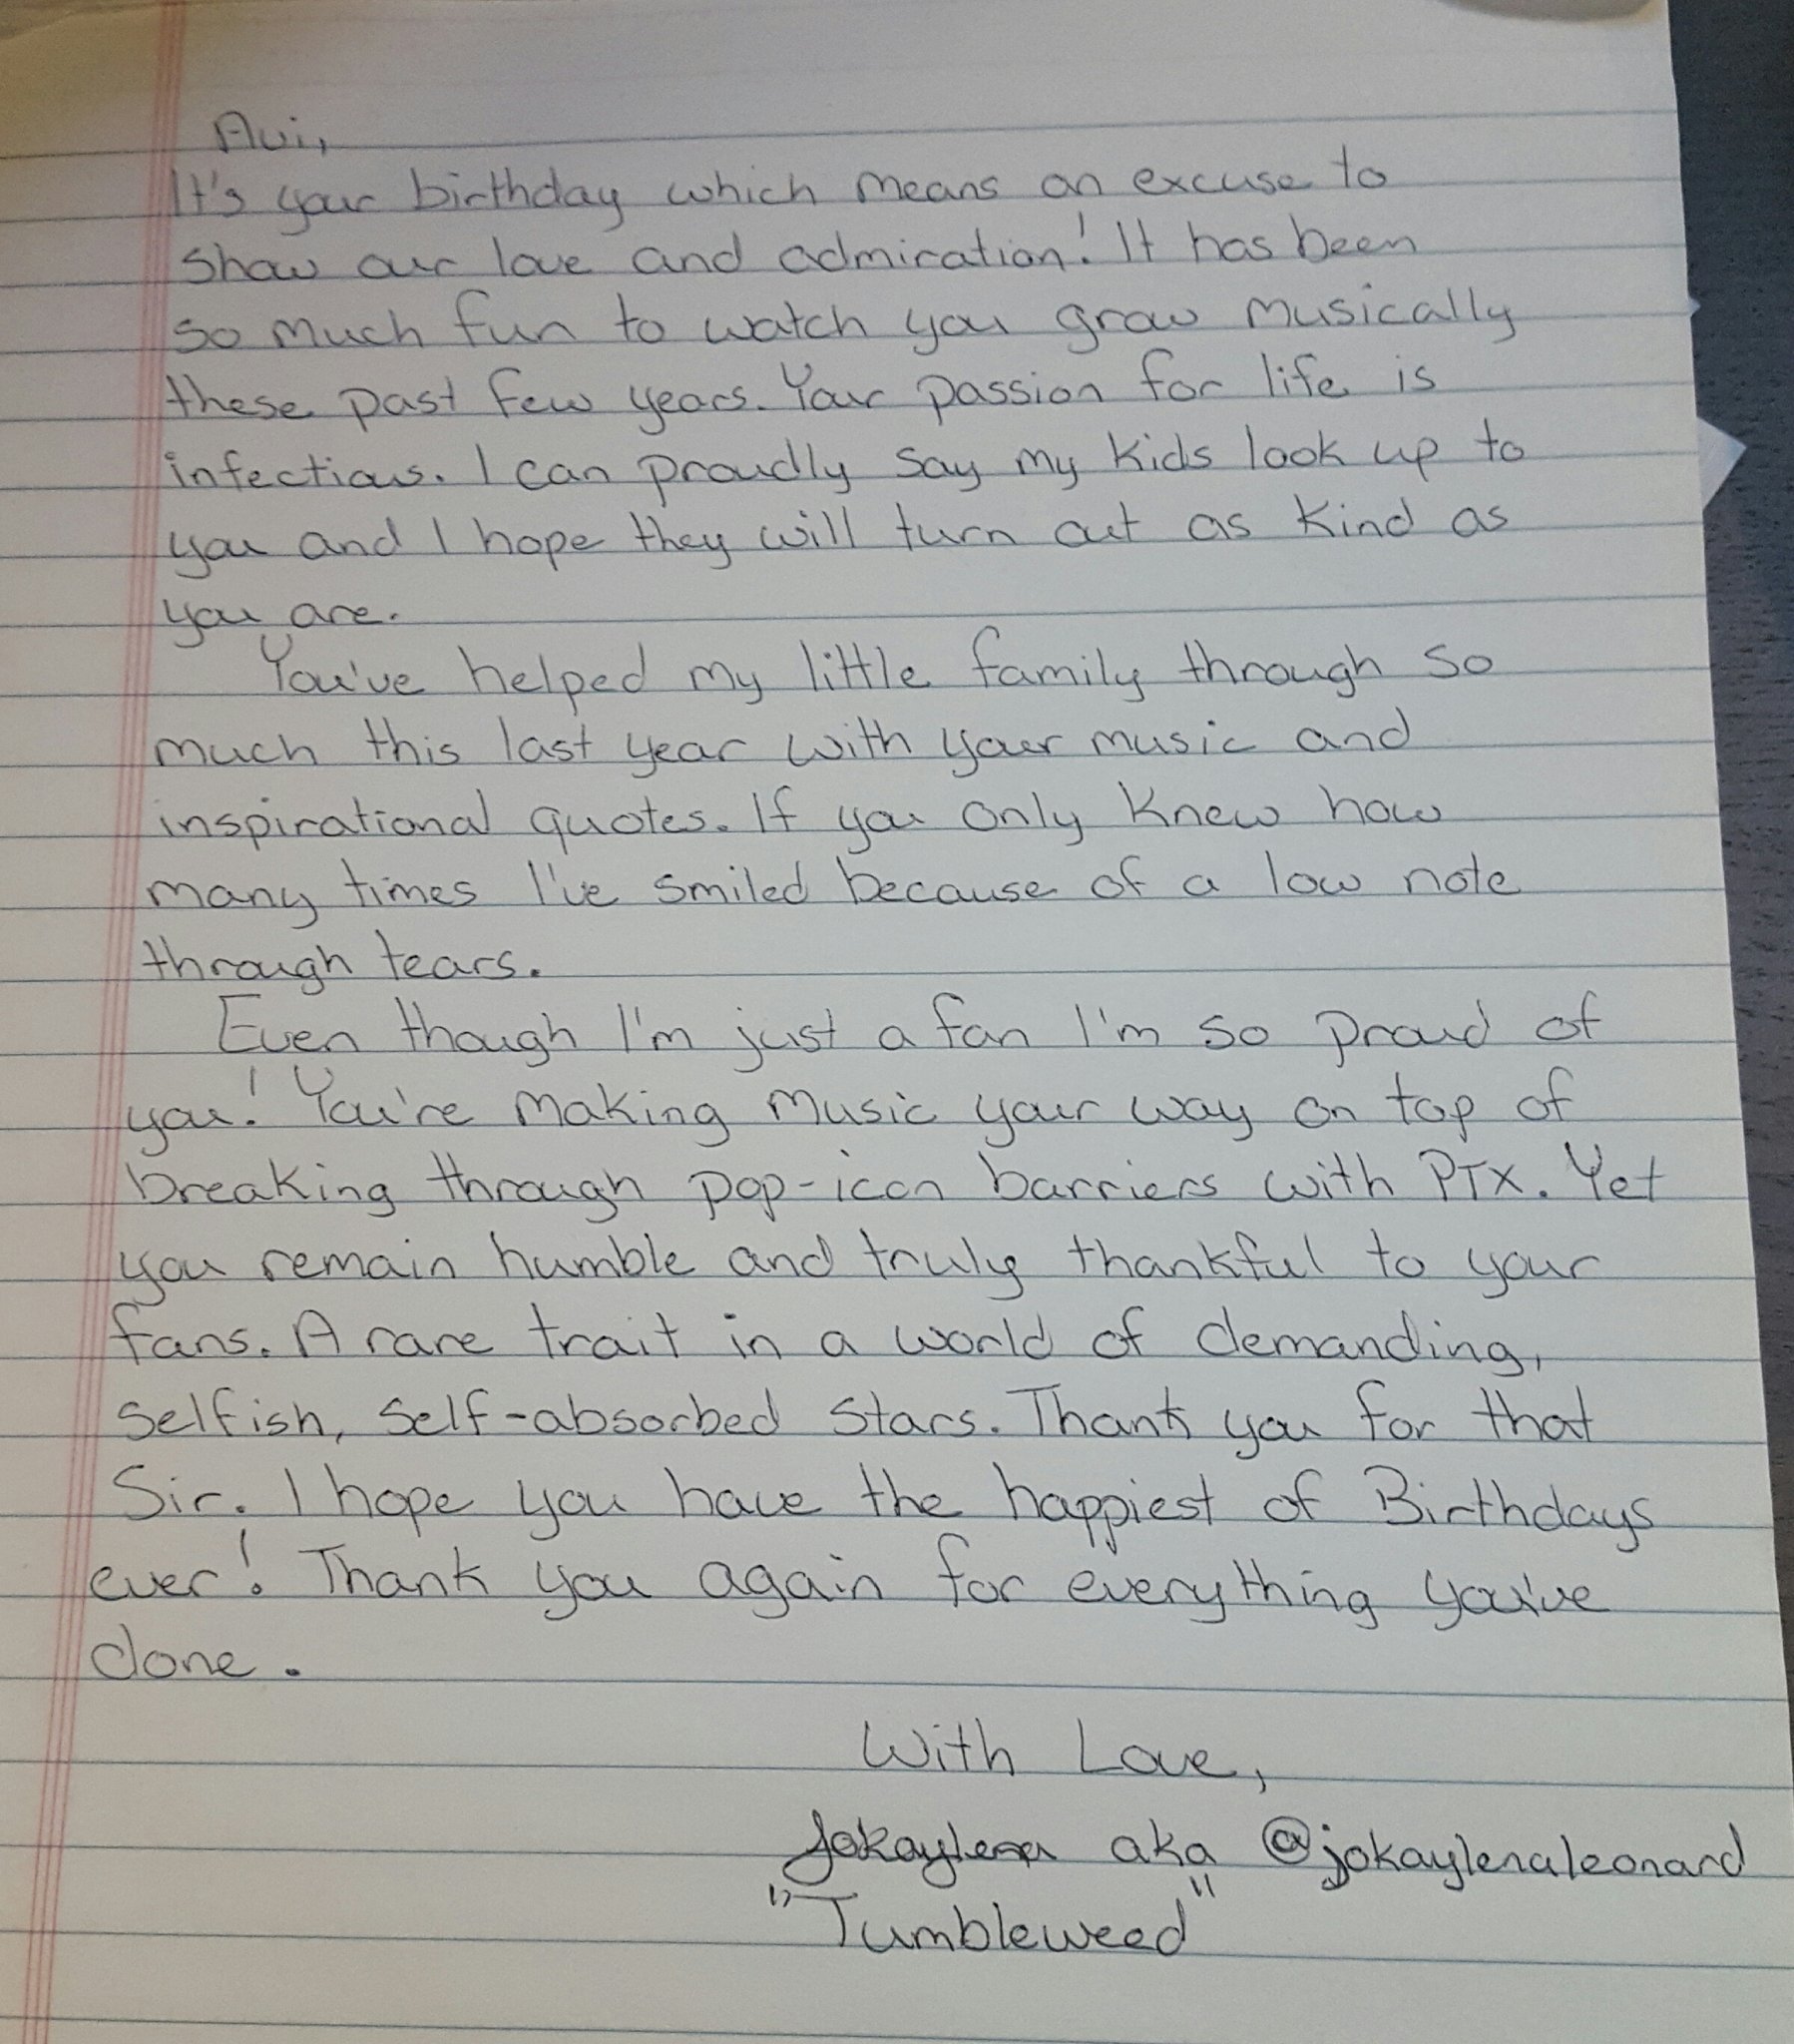 Avi,
It's your birthday which means an excuse to
show our love and admiration! It has been
so much fun to watch you grow musically
these past few years. Your passion for life is
infectious. I can proudly say my kids look up to
you and I hope they will turn out as kind as
you are.
You've helped my little family through so
much this last year with your music and
inspirational quotes. If you only knew how
many times I've smiled because of a low note
through tears.
Even though I'm just a fan I'm so proud of
you! You're making music your way on top of
breaking through pop-icon barriers with PTX. Yet
you remain humble and truly thankful to your
fans. A rare trait in a world of demanding,
selfish, self-absorbed stars. Thank you for that
Sir. I hope you have the happiest of Birthdays
ever! Thank you again for everything you've
done.
With Love,
Jokaylena aka @jokaylenaleonard
"Tumbleweed"